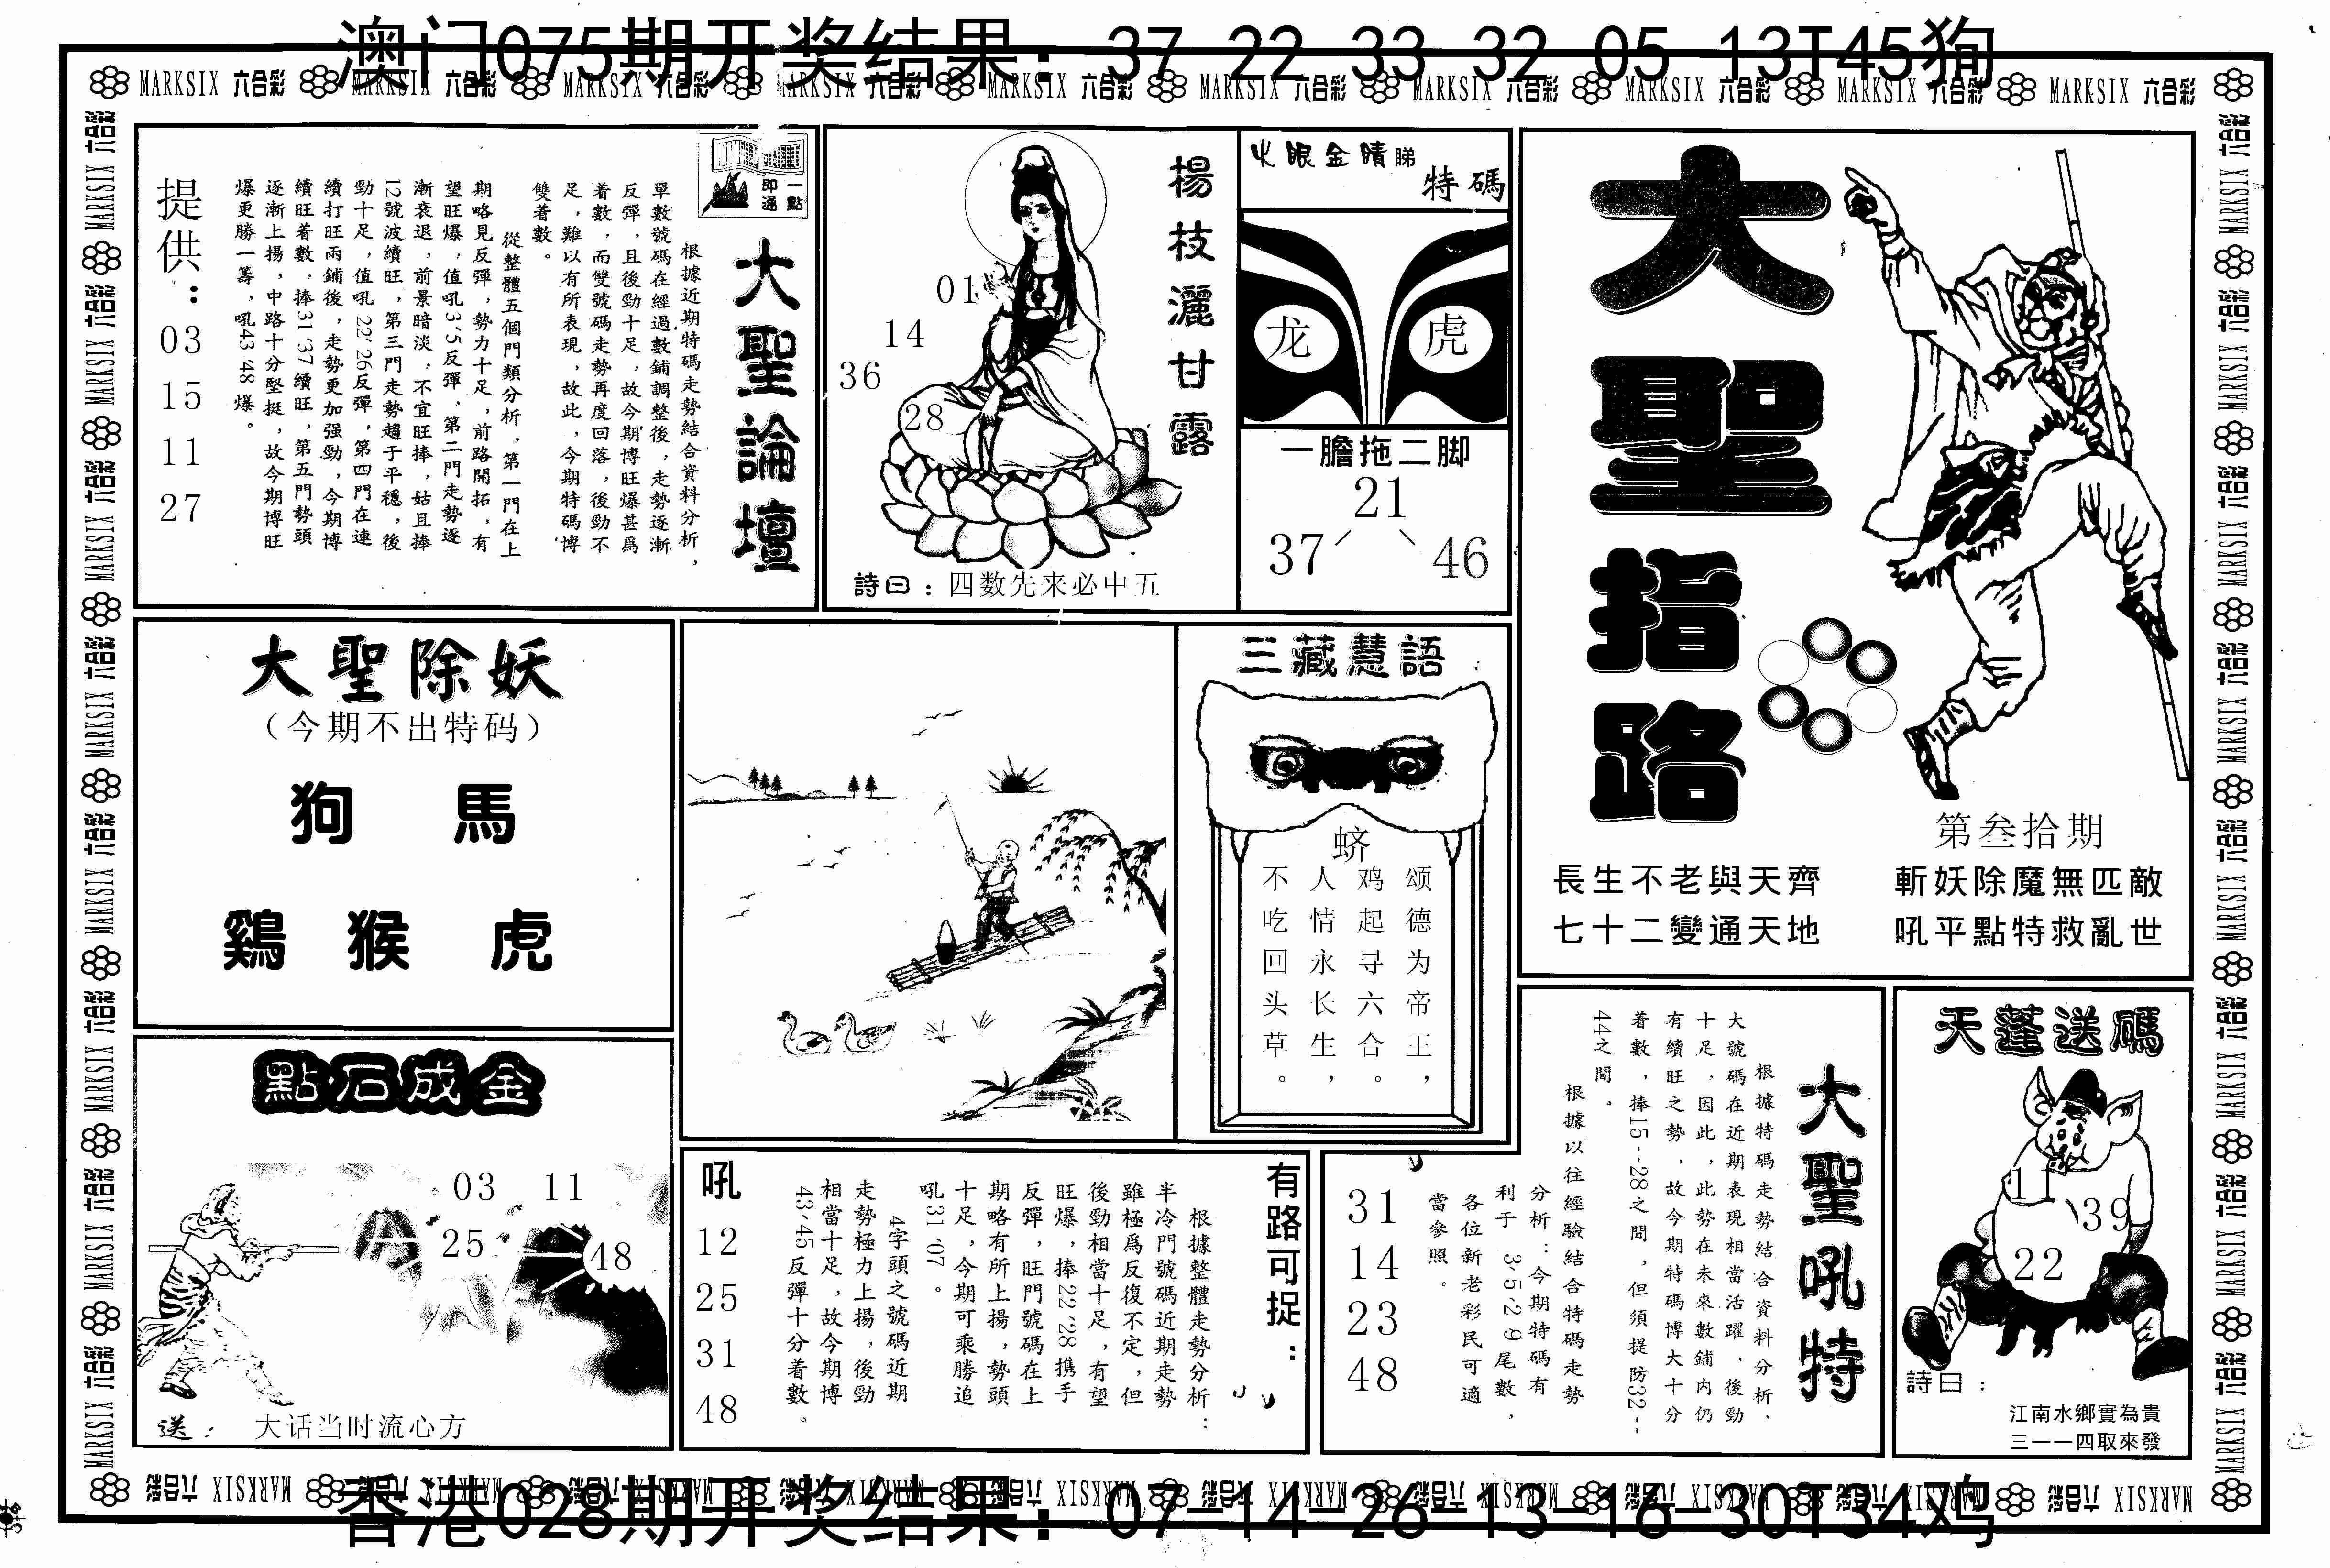 澳门075期开奖结果：37-22-33-32-05-13T45狗
MARKSIX 六合彩 MARKSIX 六合彩 MARKSIX 六合彩 MARKSIX 六合彩 MARKSIX 六合彩 MARKSIX 六合彩 MARKSIX 六合彩 MARKSIX 六合彩 MARKSIX 六合彩 MARKSIX 六合彩
大聖指路
第叁拾期
斬妖除魔無匹敵
吼平點特救亂世
長生不老與天齊
七十二變通天地
火眼金睛睇
特碼
龙
虎
一膽拖二脚
21
37
46
楊枝灑甘露
01
14
36
28
詩曰：四数先来必中五
一點
即通
大聖論壇
根據近期特碼走勢結合資料分析，
單數號碼在經過數鋪調整後，走勢逐漸
反彈，且後勁十足，故今期博旺爆甚爲
着數，而雙號碼走勢再度回落，後勁不
足，難以有所表現，故此，今期特碼博
雙着數。
從整體五個門類分析，第一門在上
期略見反彈，勢力十足，前路開拓，有
望旺爆，值吼3、5反彈，第二門走勢逐
漸衰退，前景暗淡，不宜旺捧，姑且捧
12號波續旺，第三門走勢趨于平穩，後
勁十足，值吼22、26反彈，第四門在連
續打旺兩鋪後，走勢更加强勁，今期博
續旺着數，捧31、37續旺，第五門勢頭
逐漸上揚，中路十分堅挺，故今期博旺
爆更勝一籌，吼43、48爆。
提供：
03
15
11
27
大聖除妖
（今期不出特码）
狗 馬
鷄 猴 虎
三藏慧語
蛴
颂德为帝王，
鸡起寻六合。
人情永长生，
不吃回头草。
點石成金
03 11
25
48
送： 大话当时流心方
有路可捉：
根據整體走勢分析：
半冷門號碼近期走勢
雖極爲反復不定，但
後勁相當十足，有望
旺爆，捧22、28携手
反彈，旺門號碼在上
期略有所上揚，勢頭
十足，今期可乘勝追
吼31、07。
4字頭之號碼近期
走勢極力上揚，後勁
相當十足，故今期博
43、45反彈十分着數。
吼
12
25
31
48
大聖吼特
根據特碼走勢結合資料分析，
大號碼在近期表現相當活躍，後勁
十足，因此，此勢在未來數鋪内仍
有續旺之勢，故今期特碼博大十分
着數，捧15--28之間，但須提防32--
44之間。
根據以往經驗結合特碼走勢
分析：今期特碼有
利于 3-5-2-9尾數，
各位新老彩民可適
當參照。
31
14
23
48
天蓬送碼
11
39
22
詩曰：
江南水鄉實為貴
三一一四取來發
香港028期开奖结果：07-14-26-13-16-30T34鸡